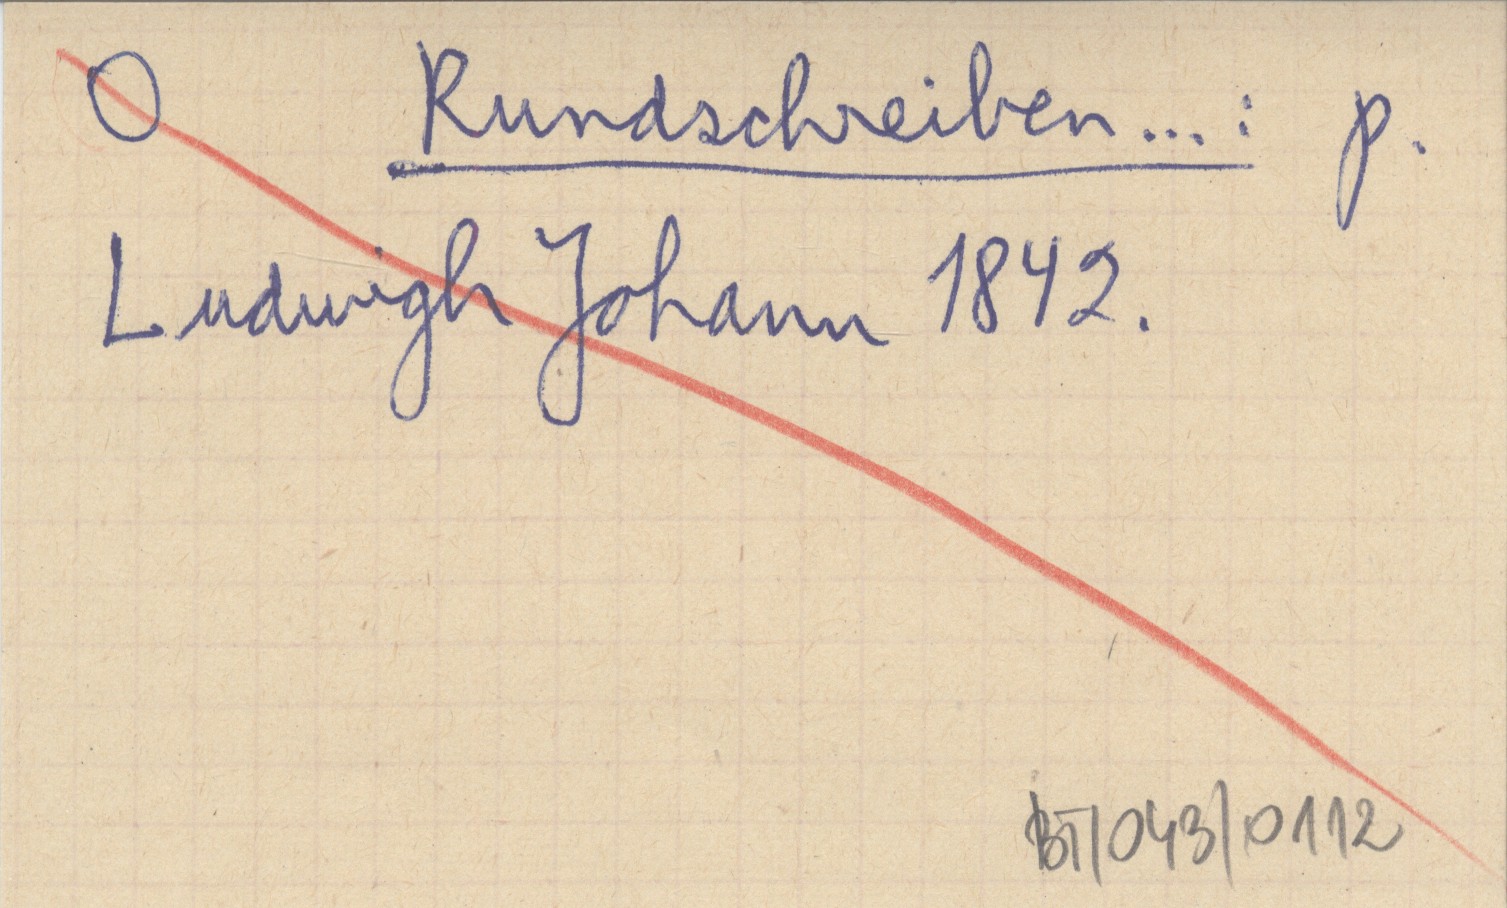 O Rundschreiben...: p.
Ludwigh Johann 1842.
BT/043/0112